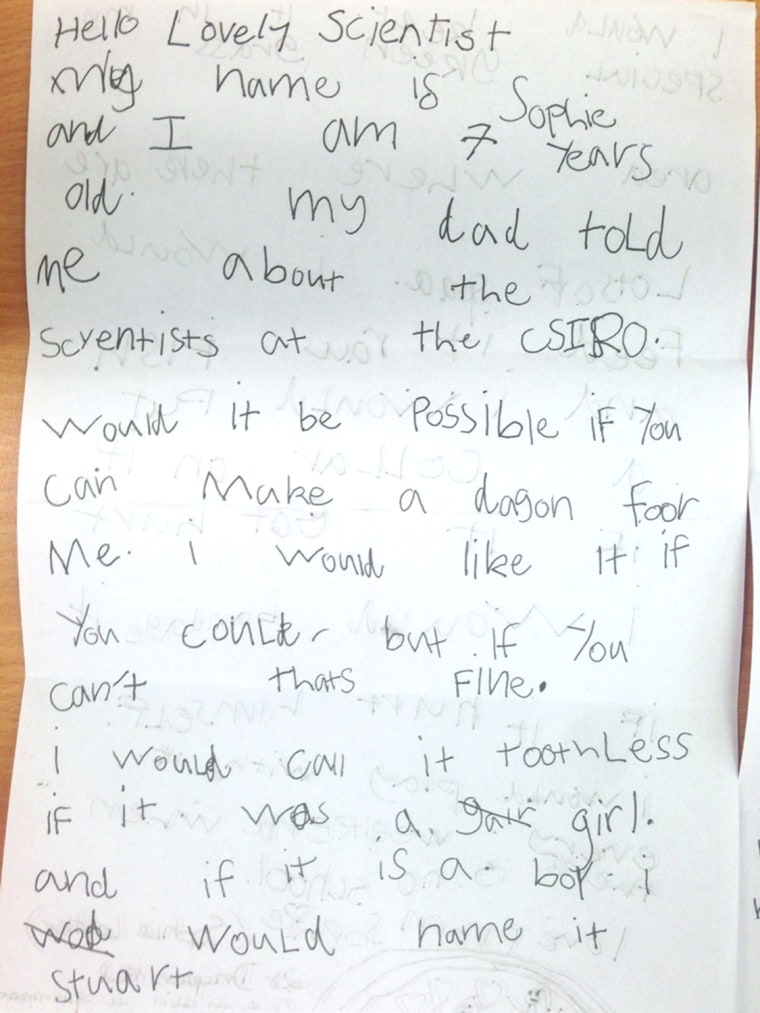 Hello Lovely Scientist
My name is Sophie
and I am 7 years
old. my dad told
me about the
scyentists at the CSIRO.
Would it be Possible if You
can Make a dagon foor
Me. I would like it if
You could, but if You
can't thats Fine.
i would call it toothLess
if it was a girl.
and if it is a boy i
would name it
Stuart